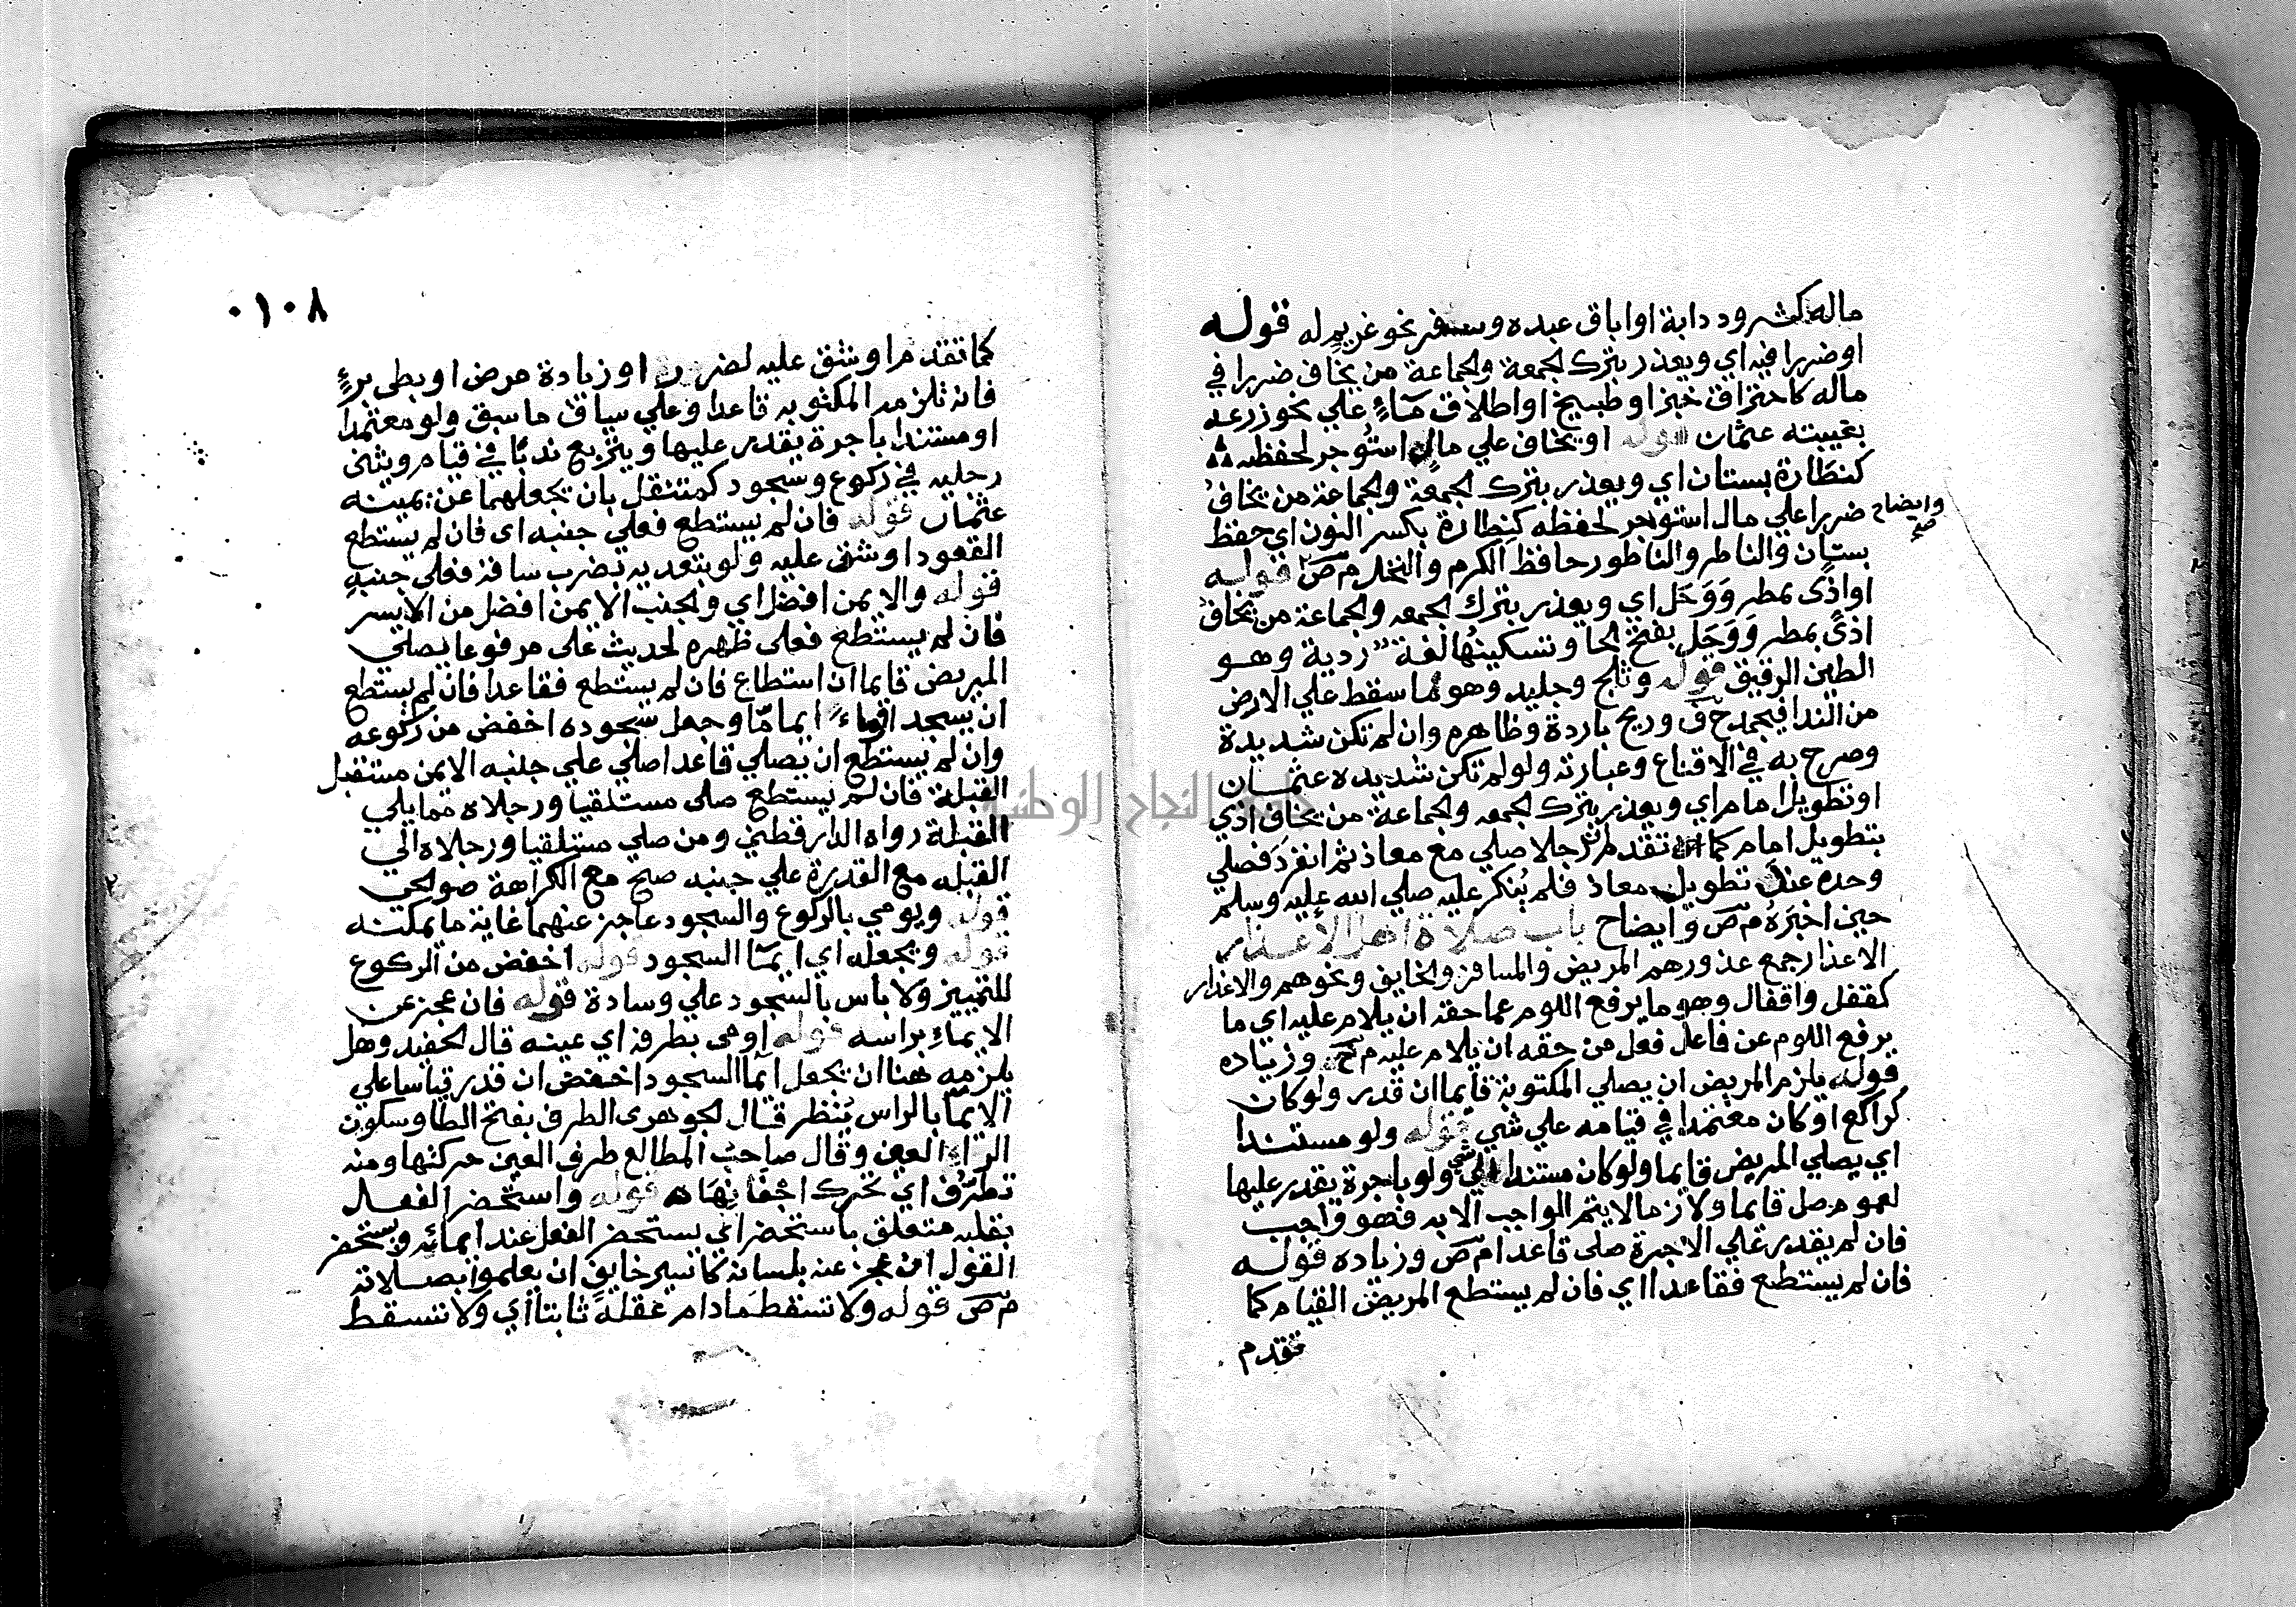 ماله كشرود دابة او اباق عبده وسفر نحو غريم له قوله
او ضررا فيه اي ويعذر بترك لجمعة ولجماعة من يخاف ضررا في
ماله كاحتراق خبز او طبيخ او اطلاق مآءٍ علي نحو زرعه
بغيبته عثمان قوله او يخاف علي مال استوجر لحفظه
كنطارة بستان اي ويعذر بترك لجمعة ولجماعة من يخاف
ضررا علي مال استوجر لحفظه كنطارة بكسر النون اي حفظ
وايضاح صح
بستان والناطر والناطور حافظ الكرم والنخل م ص قوله
او اذًى بمطر وَوَحَل اي ويعذر بترك لجمعه ولجماعة من يخاف
اذىً بمطر وَوَحَل بفتح لحا وتسكينُها لغة ردية وهو
الطين الرقيق قوله وثلج وجليد وهو ما سقط علي الارض
من الندا فيجمد ح ف وريح باردة وظاهره وان لم تكن شديدة
وصرح به في الاقناع وعبارته ولو لم تكن شديده عثمان
او تطويل امام اي ويعذر بترك لجمعه ولجماعة من يخاف اذي
بتطويل امام كما تقدم ان رجلا صلي مع معاذ ثم انفرد فصلي
وحده عند تطويل معاذ فلم يُنكر عليه صلي الله عليه وسلم
حين اخبَرَهُ م ص وايضاح باب صلاة اهل الاعذار
الاعذار جمع عذور هم المريض والمسافر ولخايف ونحوهم والاعذار
كقفل واقفال وهو ما يرفع اللوم عما حقه ان يلام عليه اي ما
يرفع اللوم عن فاعل فعل من حقه ان يلام عليه م ح وزياده
قوله يلزم المريض ان يصلي المكتوبة قايما ان قدر ولو كان
كراكع او كان معتمدا في قيامه علي شي قوله ولو مستندا
اي يصلي المريض قايما ولو كان مستندا الي شي ولو باجرة يقدر عليها
لعموم صل قايما ولان ما لا يتم الواجب الا به فهو واجب
فان لم يقدر علي الاجرة صلي قاعدا م ص وزياده قوله
فان لم يستطع فقاعدا اي فان لم يستطع المريض القيام كما
تقدم
٠١٠٨
كما تقدم او شق عليه لضرر او زيادة مرض او بطي برءٍ
فانه تلزمه المكتوبه قاعدا وعلي سياق ما سبق ولو معتمدا
او مستندا باجرة يقدر عليها ويتربع ندبًا في قيام ويثنى
رجليه في ركوع وسجود كمتنفل بان يجعلهما عن يمينه
عثمان قوله فان لم يستطع فعلي جنبه اى فان لم يستطع
القعود او شق عليه ولو بتعديه بضرب ساقه فعلي جنبهِ
قوله والايمن افضل اي ولجنب الايمن افضل من الايسر
فان لم يستطع فعلى ظهره لحديث علي مرفوعا يصلي
المريض قايما ان استطاع فان لم يستطع فقاعدا فان لم يستطع
ان يسجد اوماء ايماءًا وجعل سجوده اخفض من ركوعه
وان لم يستطع ان يصلي قاعدا صلي علي جنبه الايمن مستقبل
القبلة فان لم يستطع صلى مستلقيا ورجلاه مما يلي
القبلة رواه الدارقطني ومن صلي مستلقيا ورجلاه الي
القبله مع القدرة علي جنبه صح مع الكراهة صوالحى
قوله ويومي بالركوع والسجود عاجز عنهما غاية ما يمكنه
قوله ويجعله اي ايمآ السجود قوله اخفض من الركوع
للتمييز ولا بأس بالسجود علي وسادة قوله فان عجز عن
الايماءِ براسه قوله اومى بطرفه اي عينه قال لحفيد وهل
يلزمه هنا ان يجعل ايمآ السجود اخفض ان قدر قياسا علي
الايمآ بالراس يُنظر قال لجوهرى الطرف بفتح الطا وسكون
الراء العين وقال صاحب المطالع طرف العين حركتها ومنه
تطرُّف اي تحرك اجفانِهَا قوله واستحضر الفعل
بقلبه متعلق باستحضر اي يستحضر الفعل عند ايمائه ويستحضر
القول ان عجز عنه بلسانه كاسير خايف ان يعلموا بصلاته
م ص قوله ولا تسقط مادام عقله ثابتا اي ولا تسقط